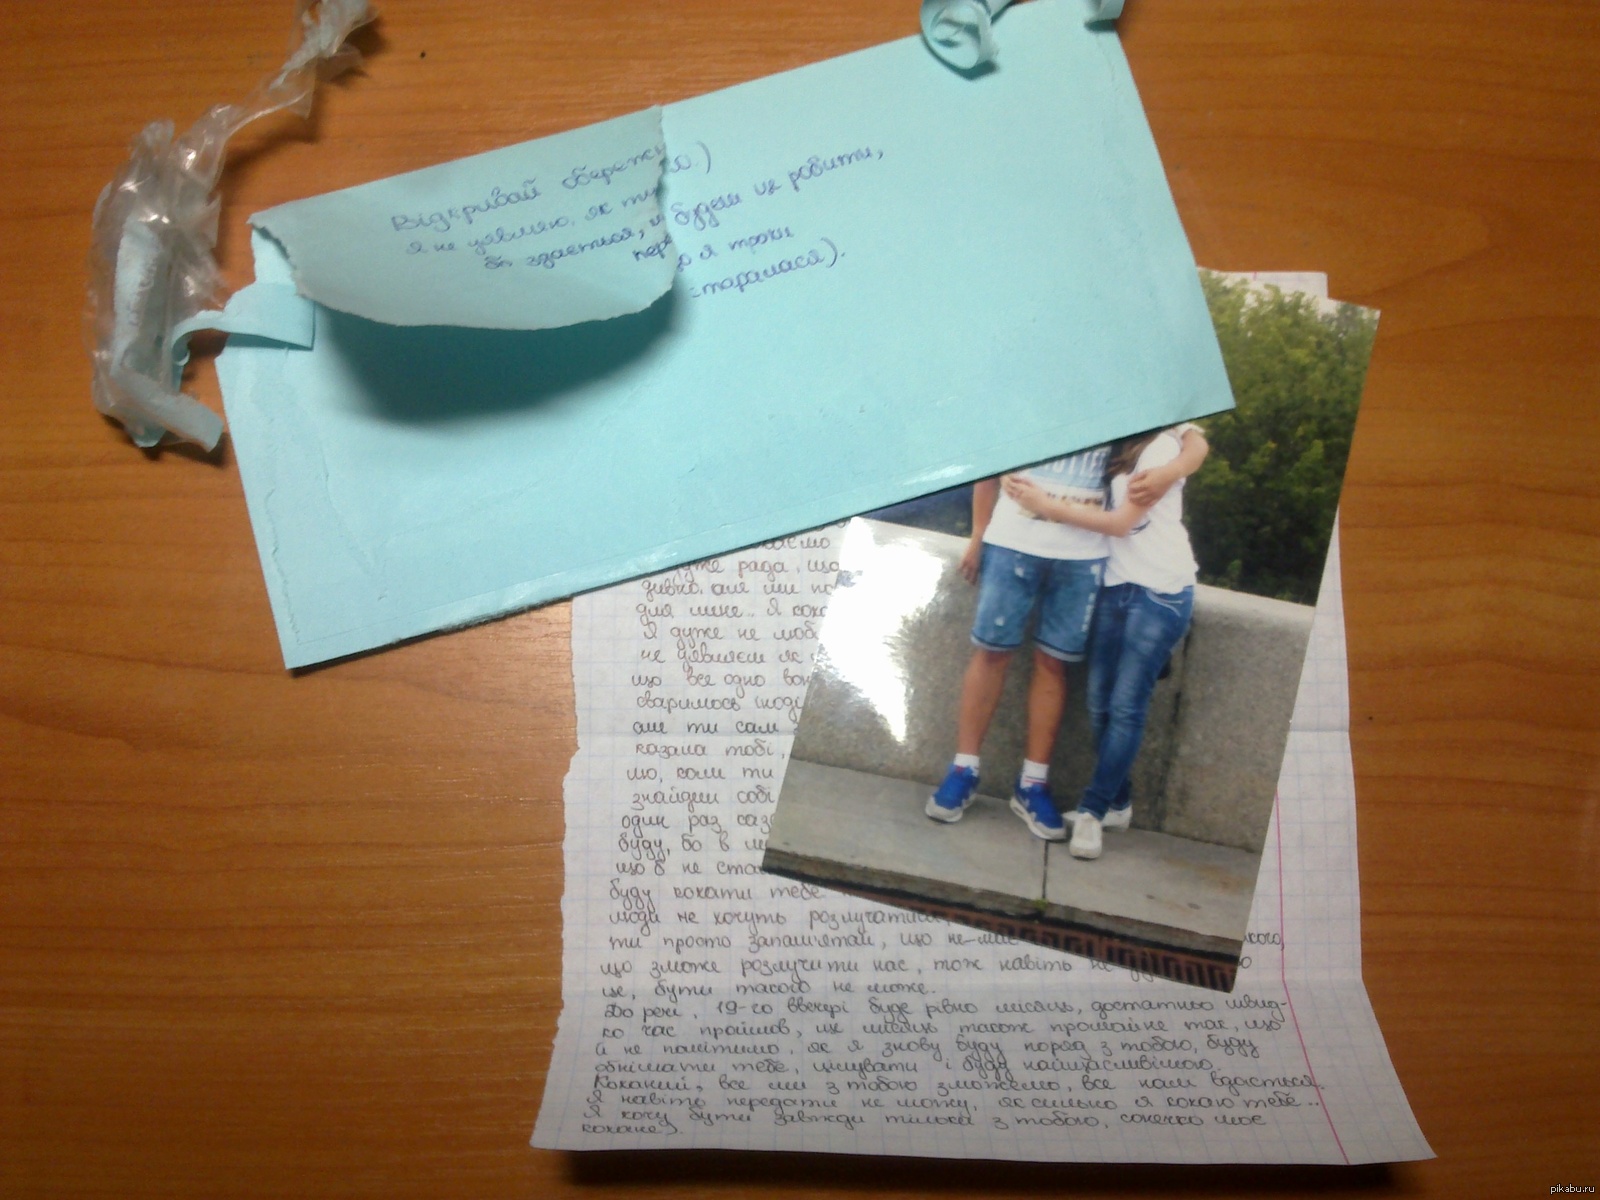 Відкривай обережно.)
я не уявляю, як ти будеш це робити,
бо здається, я трохи
перестаралася).
дуже рада, що
дивно, але ми
для мене.. Я
Я дуже не люб
не уявляєш як
що все одно
сваримось іноді
але ти сам
казала тобі,
лю, коли ти
знайдеш собі
один раз
буду, бо в
що б не
буду кохати тебе
люди не хочуть розлучатися,
ти просто запам'ятай, що не має
що зможе розлучити нас, тож навіть не
це, бути такого не може.
До речі, 19-го ввечері буде рівно місяць, достатньо швид-
ко час пройшов, це місяць також промайне так, що
й не помітимо, як я знову буду поряд з тобою, буду
обнімати тебе, цілувати і буду найщасливішою.
Коханий, все ми з тобою зможемо, все нам вдасться.
Я навіть передати не можу, як сильно я кохаю тебе..
Я хочу бути завжди тільки з тобою, сонечко моє
кохане).
pikabu.ru